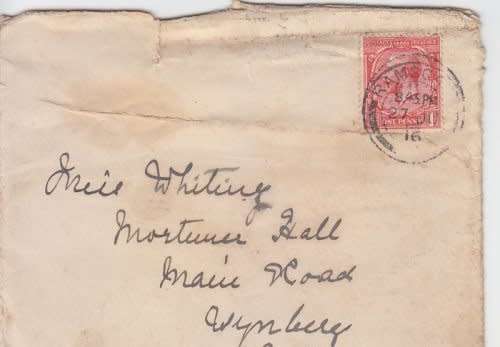 ONE PENNY
RAMS
8.45 PM
27 JU
16
Miss Whiting
Mortimer Hall
Main Road
Wynberg